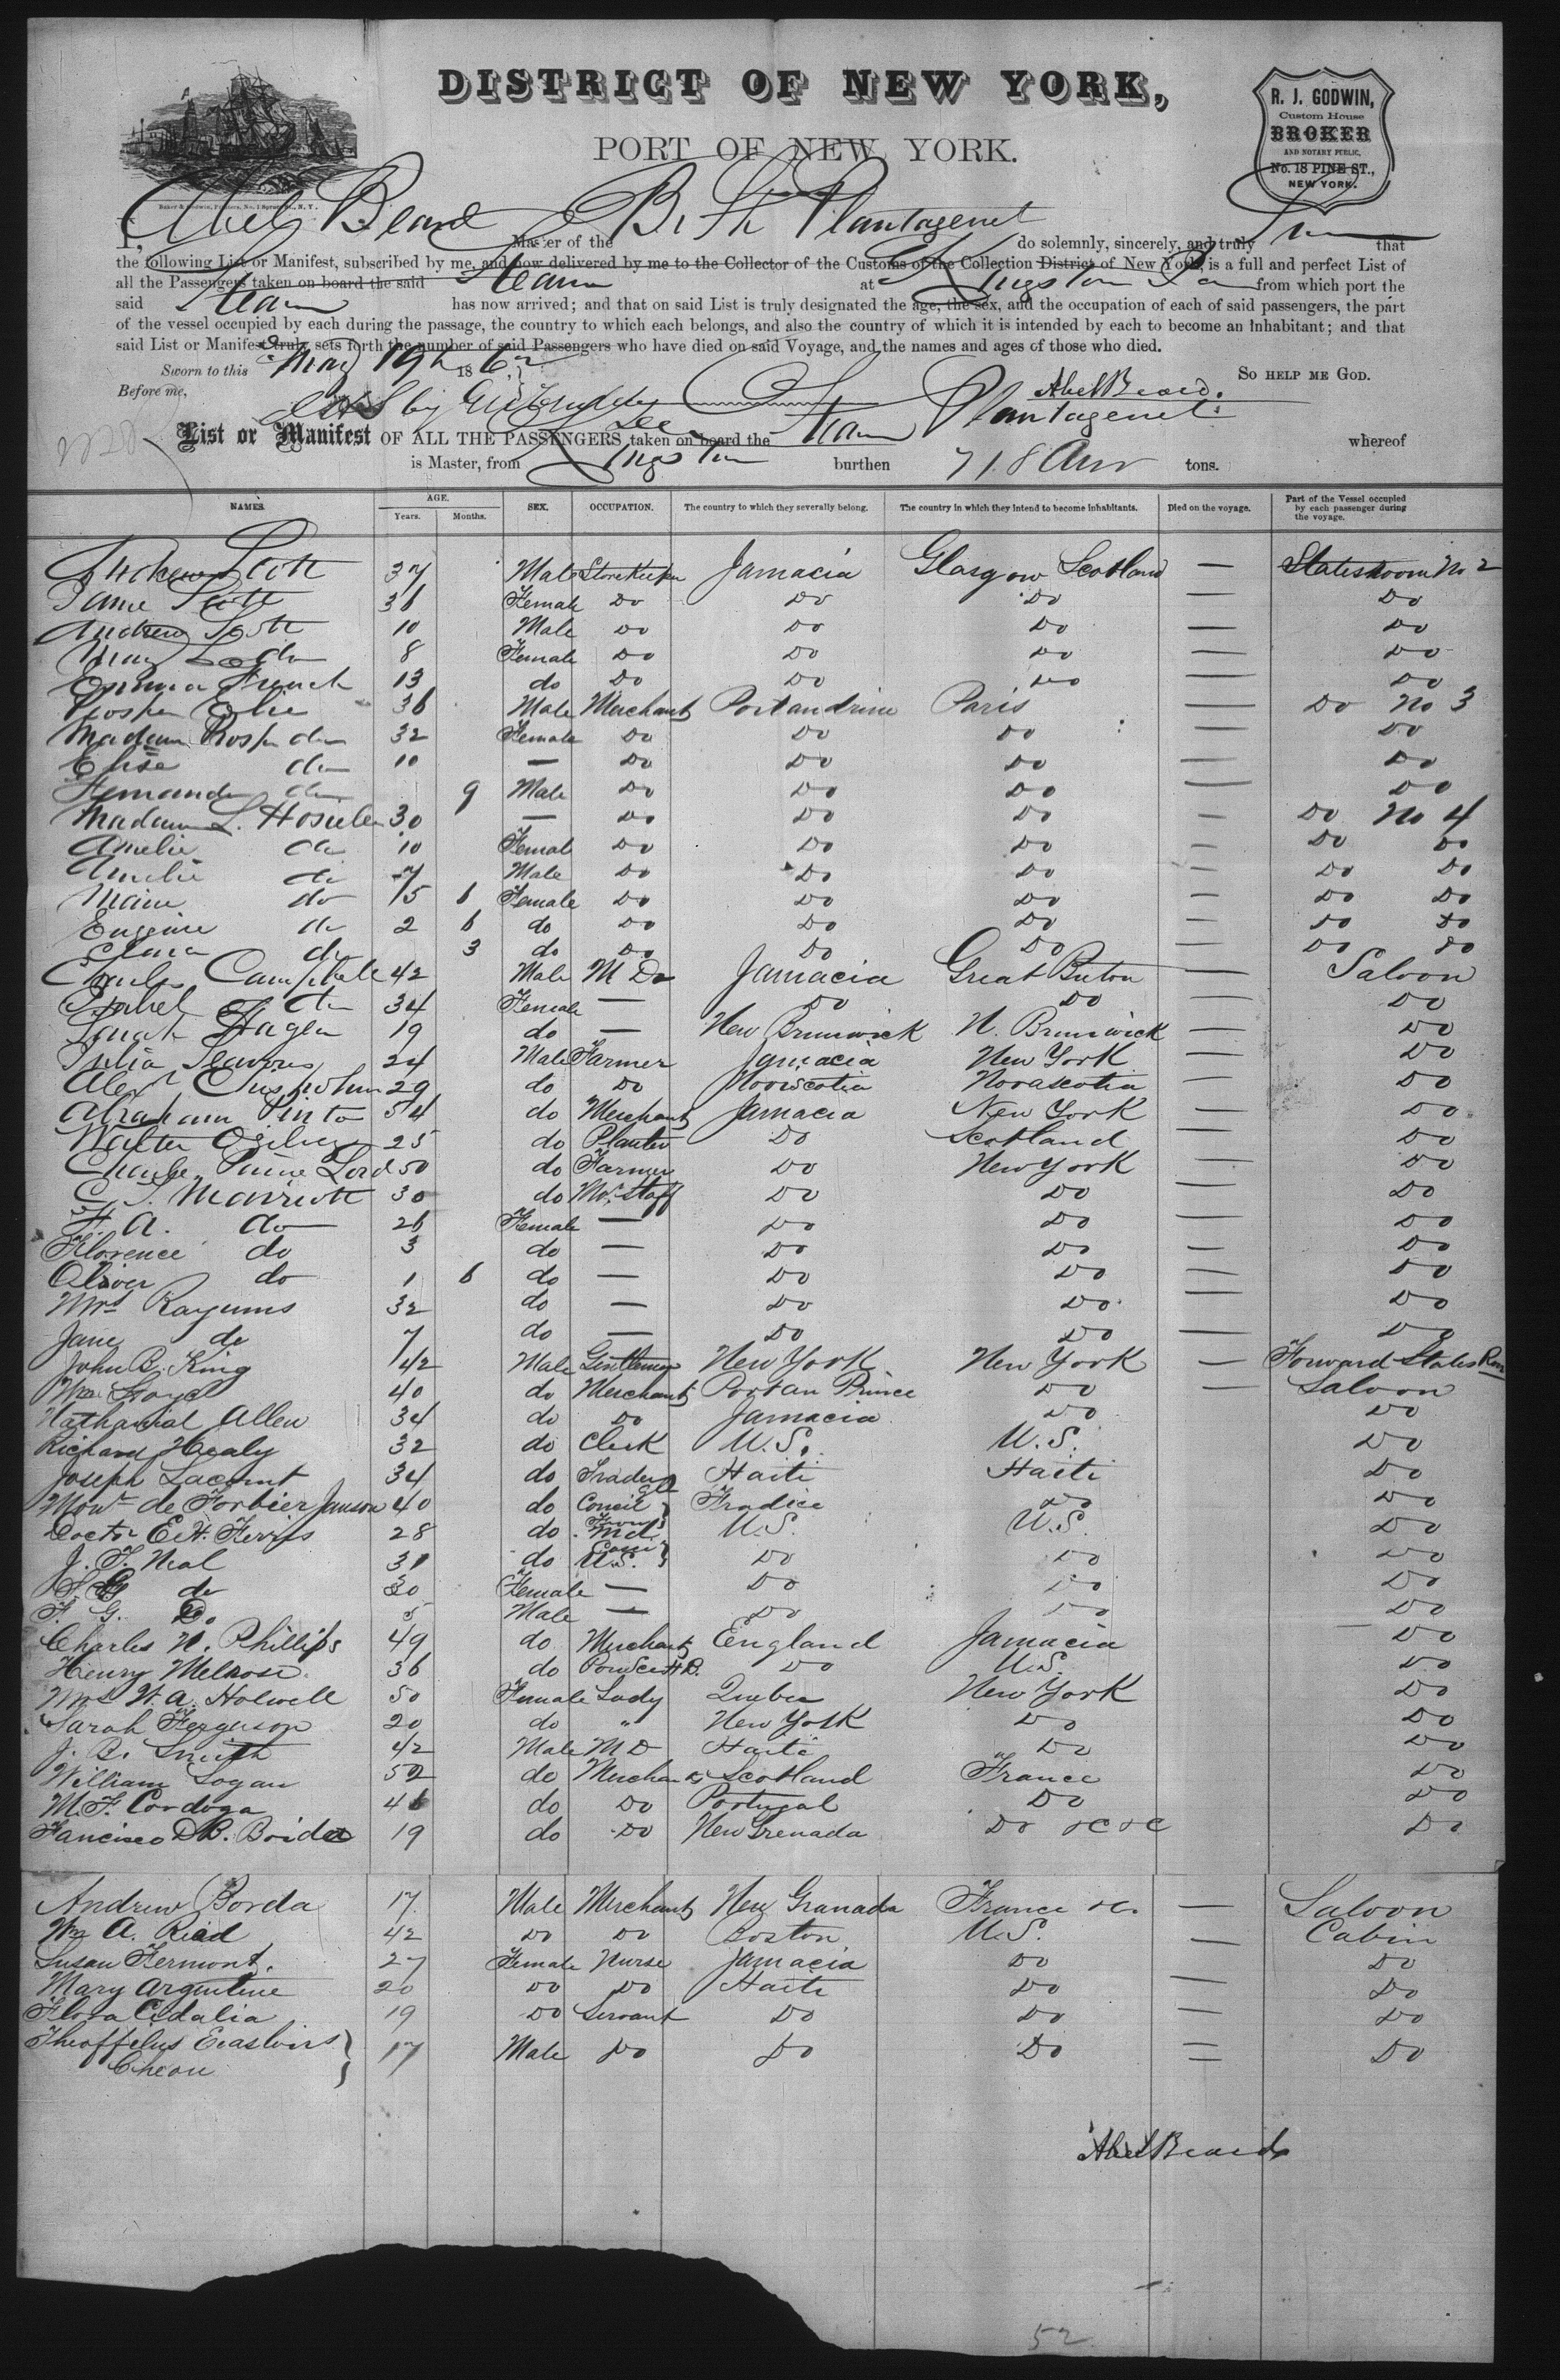 DISTRICT OF NEW YORK,
PORT OF NEW YORK.
R. J. GODWIN,
Custom House
BROKER
AND NOTARY PUBLIC,
No. 18 PINE ST.,
NEW YORK.
I, Abel Beard Master of the Plantagenet do solemnly, sincerely, and truly that
the following List or Manifest, subscribed by me, and now delivered by me to the Collector of the Customs of the Collection District of New York, is a full and perfect List of
all the Passengers taken on board the said Steam at Kingston from which port the
said Steam has now arrived; and that on said List is truly designated the age, the sex, and the occupation of each of said passengers, the part
of the vessel occupied by each during the passage, the country to which each belongs, and also the country of which it is intended by each to become an Inhabitant; and that
said List or Manifest truly sets forth the number of said Passengers who have died on said Voyage, and the names and ages of those who died.
Sworn to this May 19th 186
SO HELP ME GOD.
Before me,
Abel Beard.
List or Manifest OF ALL THE PASSENGERS taken on board the Steam Plantagenet whereof
is Master, from Kingston burthen 718 tons.
NAMES. AGE. Years. Months. SEX. OCCUPATION. The country to which they severally belong. The country in which they intend to become inhabitants. Died on the voyage. Part of the Vessel occupied by each passenger during the voyage.
Andrew Scott 37 Male Store Keeper Jamacia Glasgow Scotland — Statesroom No 2
Scott 36 Female Do Do Do — Do
Andrew Scott 10 Male Do Do Do — Do
May 8 Female Do Do Do — Do
Emma French 13 do Do Do Do — Do
36 Male Merchant Paris — Do No 3
Madam 32 Female Do Do Do — Do
Elise do 10 — Do Do Do — Do
do 9 Male Do Do Do — Do
Madam L. 30 — Do Do Do — Do No 4
Amelie do 10 Female Do Do Do — Do Do
do 7 Male Do Do Do — Do Do
do 5 6 Female Do Do Do — Do Do
Eugenie do 2 6 do Do Do Do — Do Do
do 3 do Do Do Do — Do Do
Charles Campbell 42 Male M Do Jamacia Great — Saloon
Isabel do 34 Female — Do Do — Do
Sarah Hagen 19 do — New Brunswick N. Brunswick — Do
Julia 24 Male Farmer Jamacia New York — Do
Alexr Chisholm 29 do Do Novascotia — Do
Abraham Pinto 54 do Merchant Jamacia New York — Do
Walter Ogilvy 25 do Planter Do Scotland — Do
Lord 50 do Farmer Do New York — Do
Marriott 30 do Staff Do Do — Do
A. do 26 Female — Do Do — Do
Florence do 3 do — Do Do — Do
Oliver do 1 6 do — Do Do — Do
Mrs Rayums 32 do — Do Do — Do
Jane do 7 do — Do Do — Do
John B. King 42 Male Gentleman New York New York — Forward States Rm
Wm 40 do Merchant Port an Prince Do — Saloon
Nathanial Allen 34 do Do Jamacia Do Do
Richard Healy 32 do Clerk U.S. U.S. Do
Joseph Lacomt 34 do Trader Haiti Haiti Do
de Forbier Janson 40 do Do Do
Doctor E.H. Ferris 28 do Md. U.S. U.S. Do
J. F. Neal 31 do U.S. Do Do Do
do 30 Female — Do Do Do
F. G. Do 5 Male — Do Do Do
Charles N. Phillips 49 do Merchant England Jamacia Do
Henry Melrose 36 do Do U.S. Do
Mrs W. A. Holwell 50 Female Lady Quebec New York Do
Sarah Ferguson 20 do " New York Do Do
J. B. Smith 42 Male M D Haiti Do Do
William Logan 52 do Merchant Scotland France Do
M. F. Cordoga 46 do Do Portugal Do Do
Fancisco D B. 19 do Do New Grenada Do &C &C Do
Andrew Borda 17 Male Merchant New Granada France &c. — Saloon
Wm A. Ried 42 Do Do Boston U.S. — Cabin
Susan Fermont. 27 Female Nurse Jamacia Do — Do
Mary Argentine 20 Do Do Haiti Do — Do
Flora Cidalia 19 Do Servant Do Do — Do
Theoffelus 17 Male Do Do Do — Do
Abel Beard
52